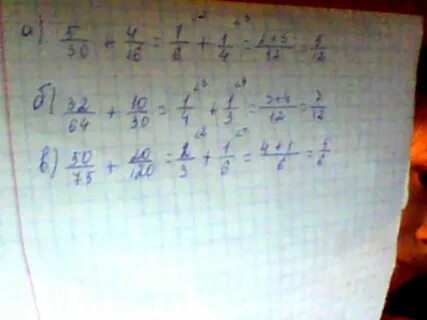 а) 5/30 + 4/16 = 1/6 + 1/4 = 2+3/12 = 5/12
б) 32/64 + 10/30 = 1/4 + 1/3 = 3+4/12 = 7/12
в) 50/75 + 20/120 = 2/3 + 1/6 = 4+1/6 = 5/6